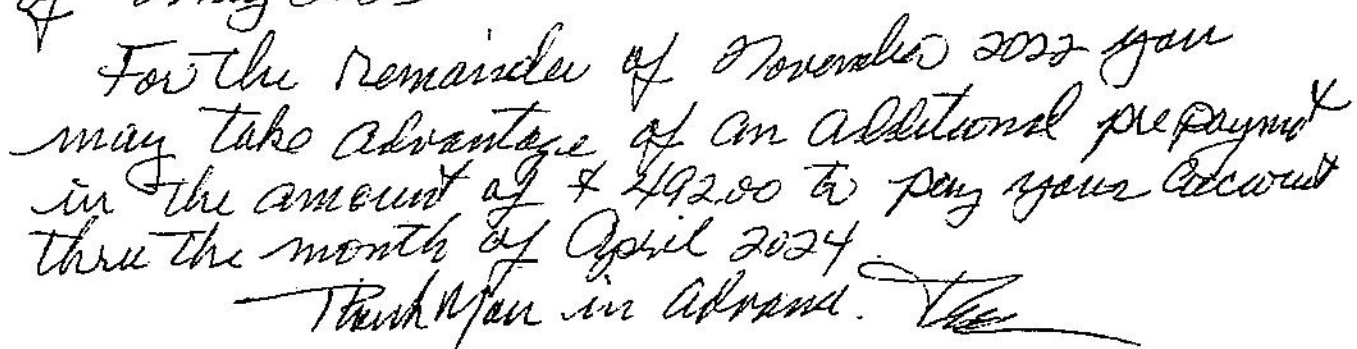 of May
For the remainder of November 2022 you
may take advantage of an additional prepaymt
in the amount of $ 492.00 to pay your account
thru the month of April 2024.
Thank You in advance.